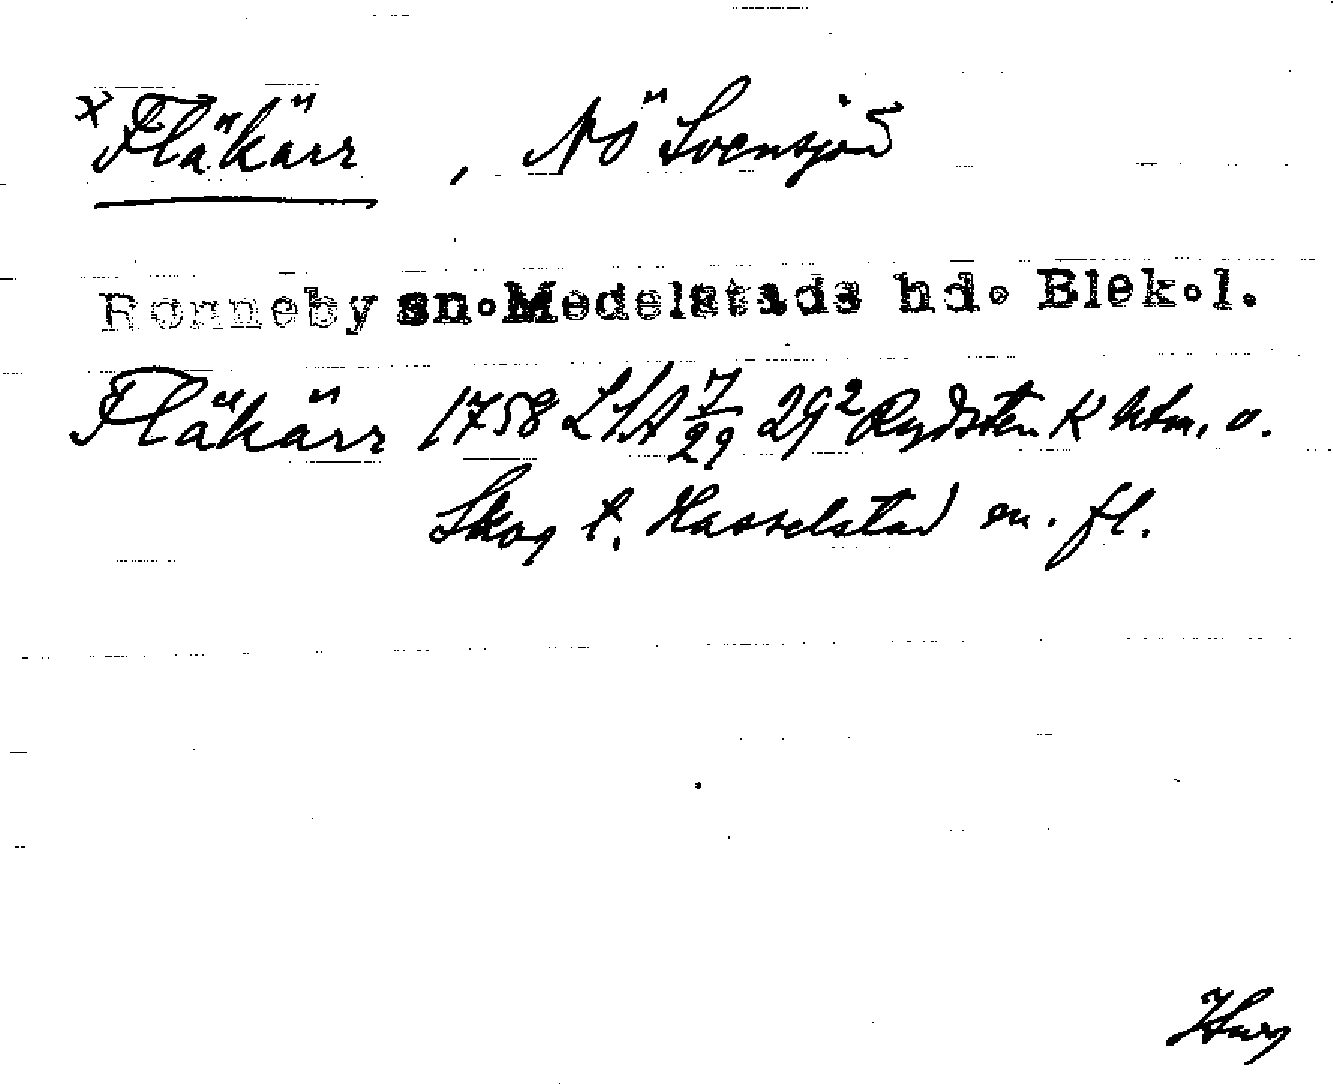 x Fläkärr, NÖ Svensjön
Ronneby sn. Medelstads hd. Blek.l.
Fläkärr 1758 LSA 7/29 29² Rydsten K utm. o.
Skog t. Hasselstad m. fl.